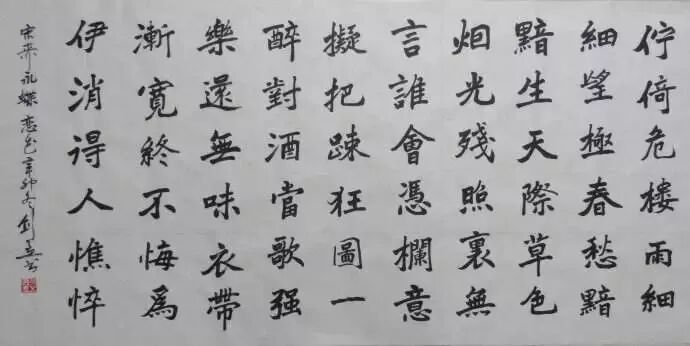 佇倚危樓雨細
細望極春愁黯
黯生天際草色
烟光殘照裏無
言誰會憑欄意
擬把疎狂圖一
醉對酒當歌强
樂還無味衣帶
漸寬終不悔爲
伊消得人憔悴
宋柳永蝶恋花辛卯冬剑书